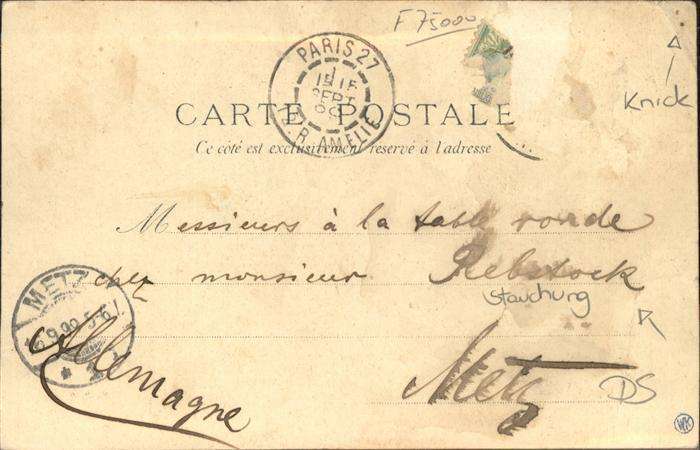 F 75000
PARIS 27
1
SEPT
R. AMELIE
Knick
CARTE POSTALE
Ce côté est exclusivement réservé à l'adresse
Messieurs à la table ronde
chez monsieur Rebstock
Stauchung
METZ
Allemagne
Metz
DS
WK